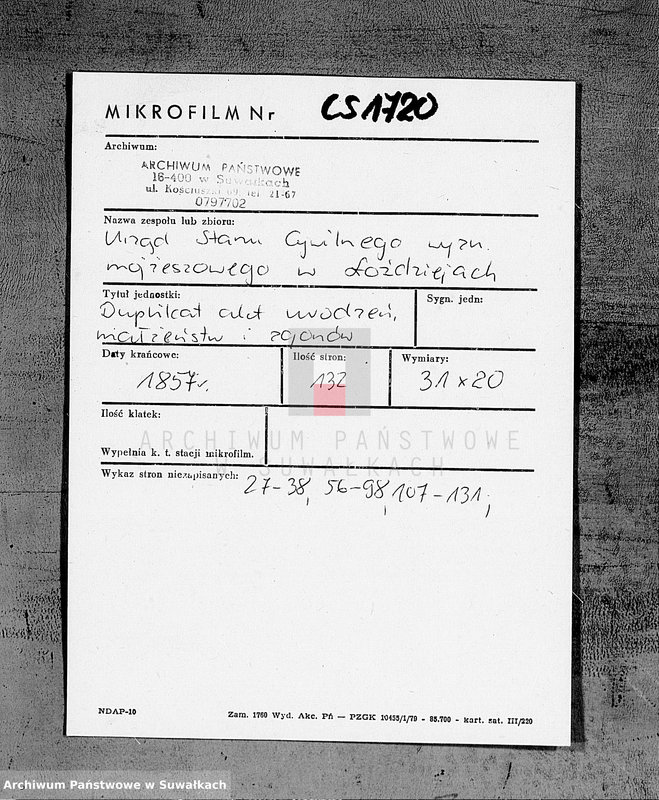 MIKROFILM Nr CS1720
Archiwum:
ARCHIWUM PAŃSTWOWE
16-400 w Suwałkach
ul. Kościuszki 69, tel. 21-67
0797702
Nazwa zespołu lub zbioru:
Urząd Stanu Cywilnego wyzn.
mojżeszowego w Łoździejach
Tytuł jednostki:
Sygn. jedn:
Duplikat akt urodzeń,
małżeństw i zgonów
Daty krańcowe:
Ilość stron:
Wymiary:
1857r.
132
31 x 20
Ilość klatek:
ARCHIWUM PAŃSTWOWE
W SUWAŁKACH
Wypełnia k. t. stacji mikrofilm.
Wykaz stron niezapisanych: 27-38, 56-98, 107-131;
NDAP-10
Zam. 1760 Wyd. Akc. Pń — PZGK 10455/1/79 - 85.700 - kart. sat. III/220
Archiwum Państwowe w Suwałkach